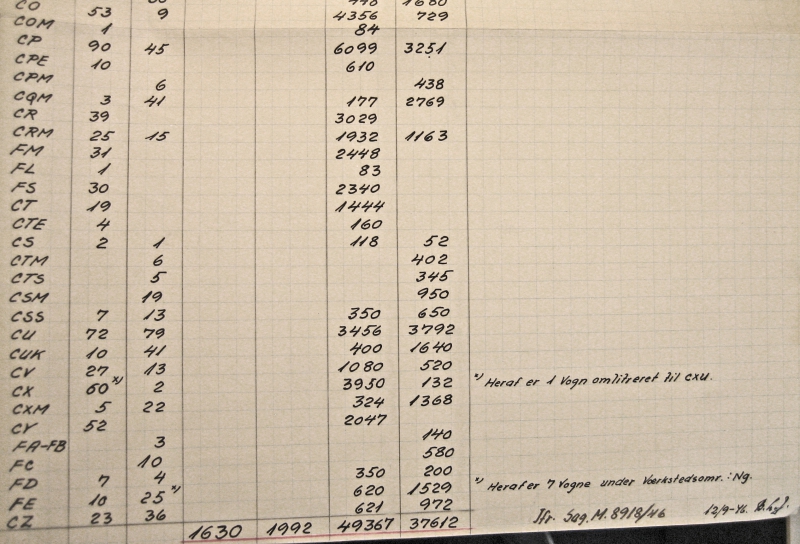 CO 53 9 4356 729
COM 1 84
CP 90 45 6099 3251
CPE 10 610
CPM 6 438
CQM 3 41 177 2769
CR 39 3029
CRM 25 15 1932 1163
FM 31 2448
FL 1 83
FS 30 2340
CT 19 1444
CTE 4 160
CS 2 1 118 52
CTM 6 402
CTS 5 345
CSM 19 950
CSS 7 13 350 650
CU 72 79 3456 3792
CUK 10 41 400 1640
CV 27 13 1080 520
CX 60 x) 2 3950 132 x) Heraf er 1 Vogn omlitreret til CXU.
CXM 5 22 324 1368
CY 52 2047
FA-FB 3 140
FC 10 580
FD 7 4 350 200
FE 10 25 x) 620 1529 x) Heraf er 7 Vogne under Værkstedsomr.: Ng.
CZ 23 36 621 972
1630 1992 49367 37612
Jfr. Sag. M. 8918/46 12/9-46.